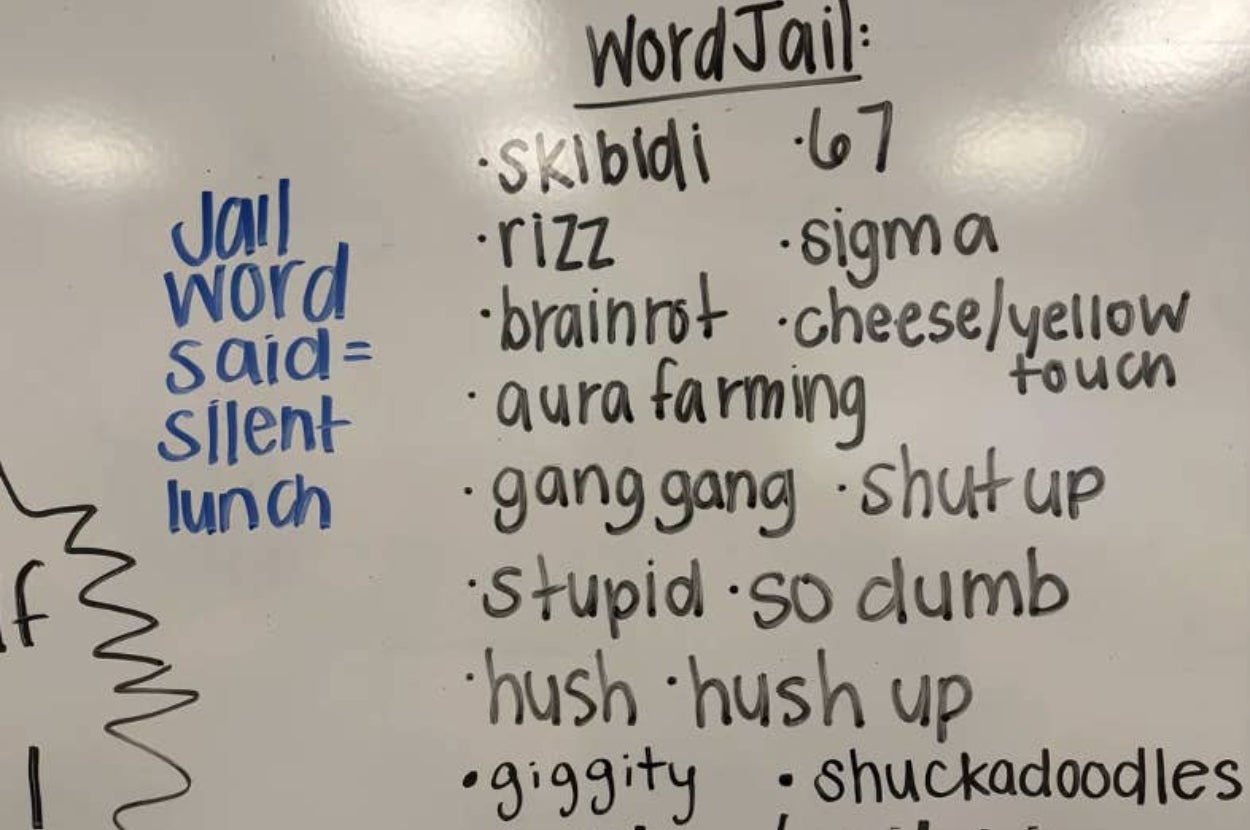 Word Jail:
· skibidi · 67
· rizz · sigma
· brainrot · cheese/yellow
touch
· aura farming
· gang gang · shut up
· stupid · so dumb
· hush · hush up
· giggity · shuckadoodles
Jail
word
said =
silent
lunch